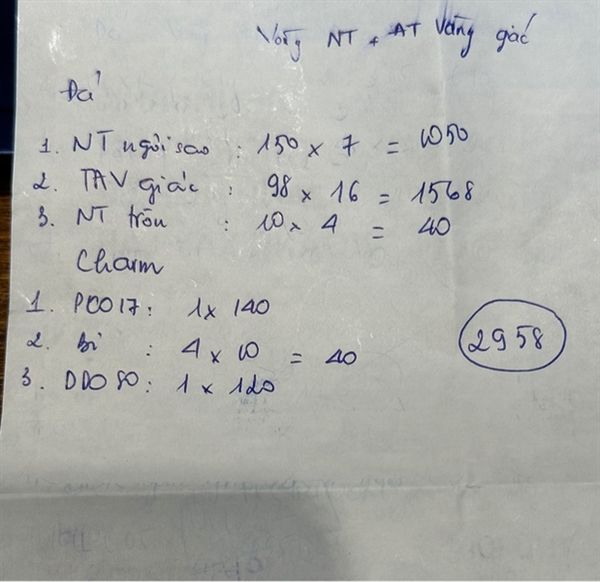 Vòng NT + AT Vàng giác
Đá
1. NT ngôi sao : 150 x 7 = 1050
2. TAV giác : 98 x 16 = 1568
3. NT trôn : 10 x 4 = 40
Charm
1. PC017: 1 x 140
2. Bi : 4 x 10 = 40
3. DD080: 1 x 120
2958